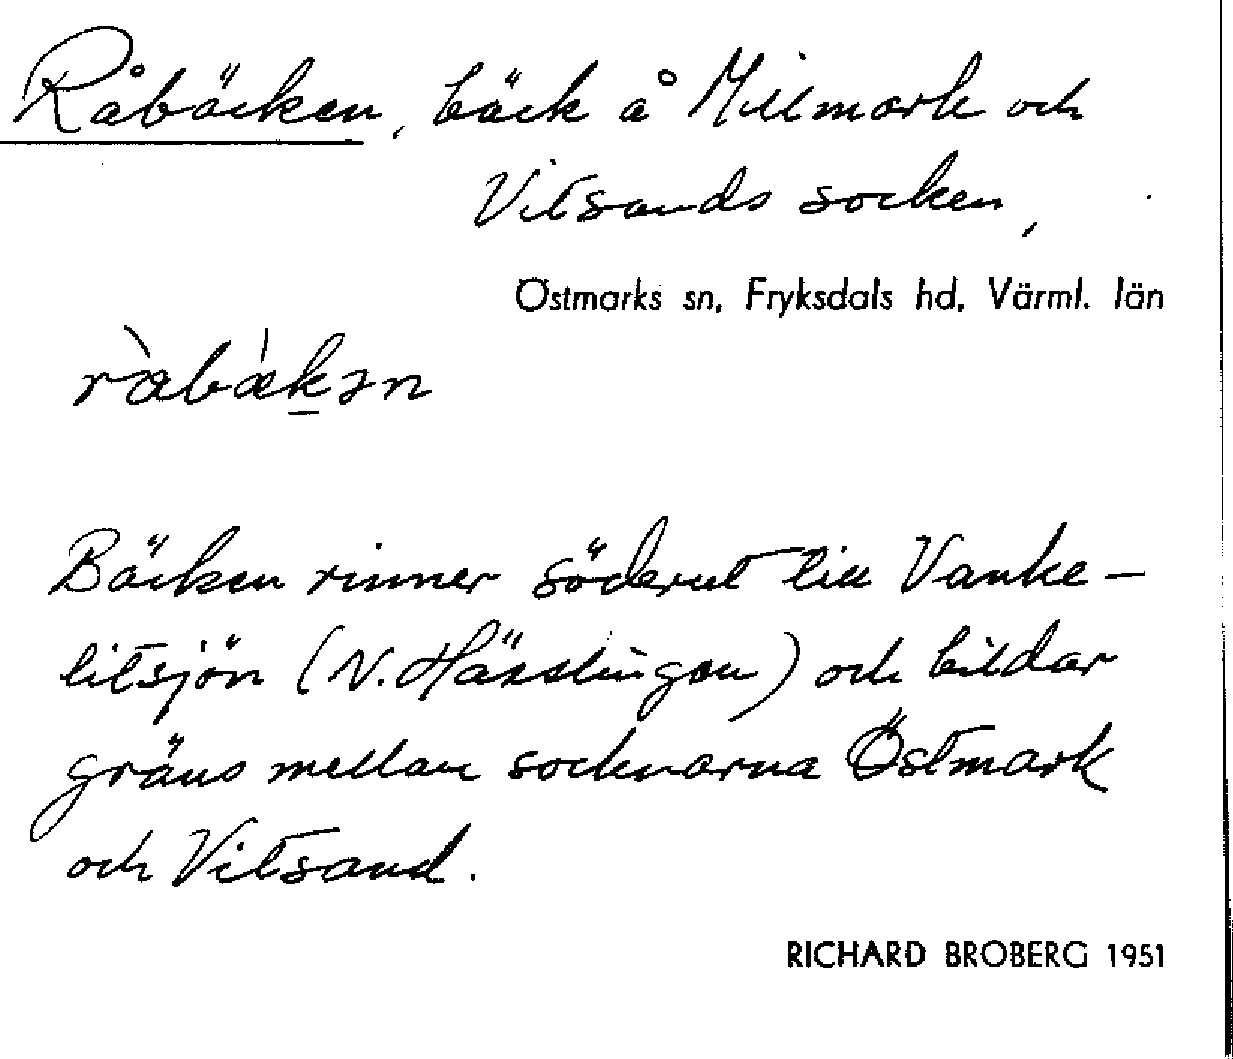 Råbäcken, bäck å Millmark och
Vitsands socken,
Östmarks sn, Fryksdals hd, Värml. län
ràbǽkən
Bäcken rinner söderut till Vanke-
litsjön (N. Hässlingen) och bildar
gräns mellan socknarna Östmark
och Vitsand.
RICHARD BROBERG 1951